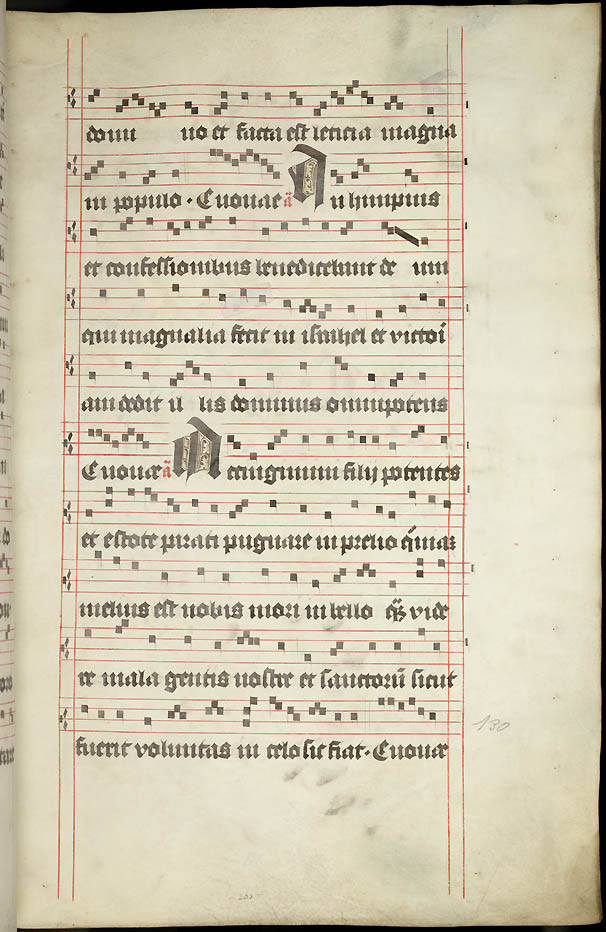 domi no et facta est leticia magna
in populo · Euouae a̅ In himpnis
et confessionibus benedicebant do mi
qui magnalia fecit in israhel et victori̅
am dedit il lis dominus omnipotens
Euouae a̅ Accingimini filij potentes
et estote parati pugnare in prelio qm̅ iaz
melius est nobis mori in bello q̅z vide
re mala gentis nostre et sanctoru̅ sicut
fuerit voluntas in celo sic fiat · Euouae
130